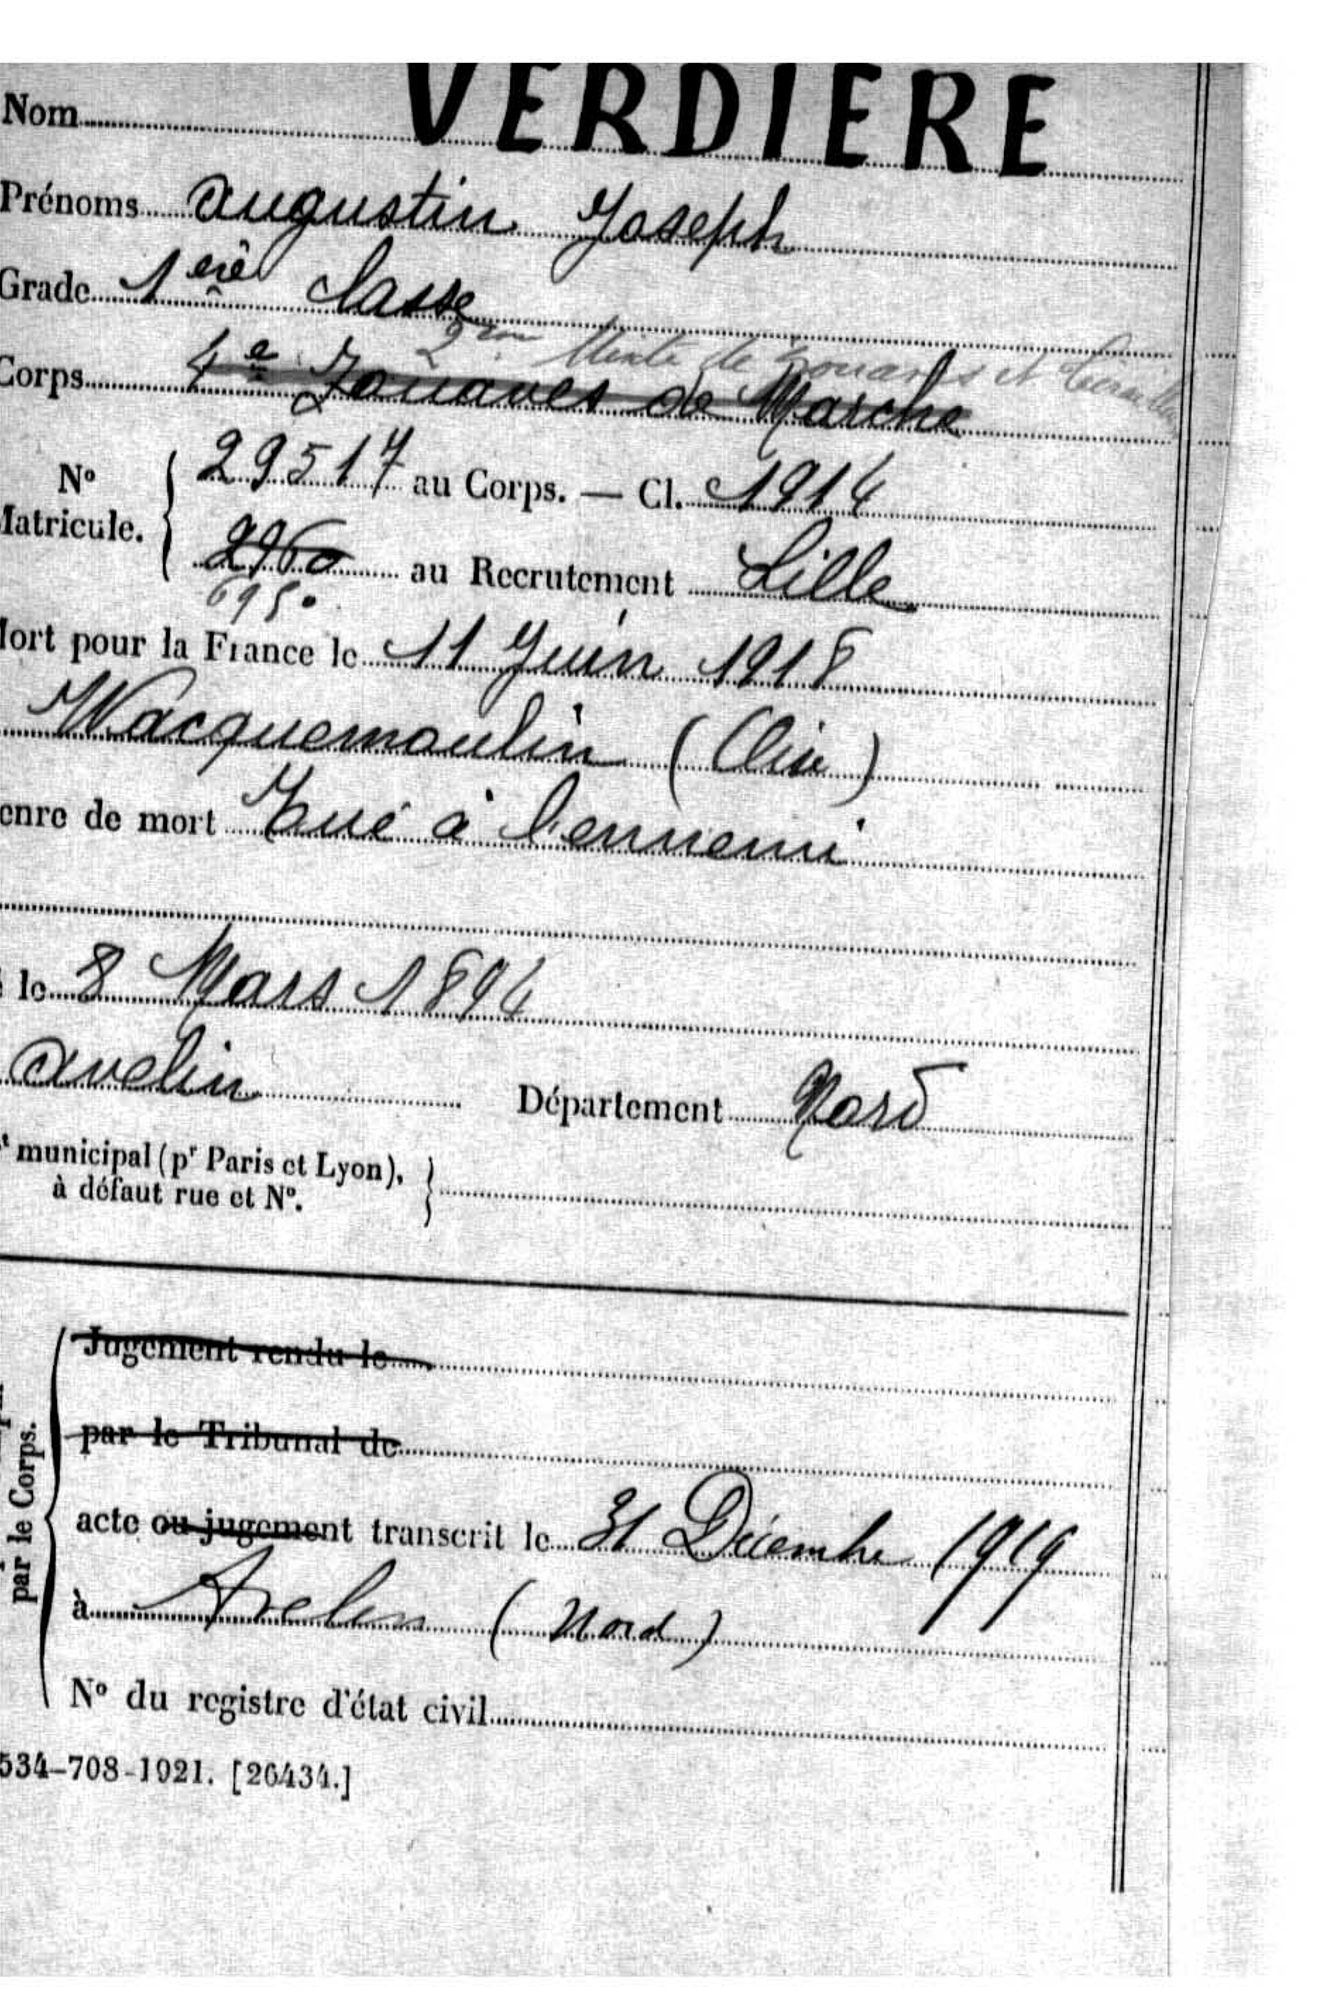 VERDIERE
Nom
Prénoms Augustin Joseph
Grade 1ère Classe
2em Mixte de Zouaves et Tirailleurs
Corps 4e Zouaves de Marche
N° Matricule. 29517 au Corps. — Cl. 1914
2960 au Recrutement Lille
6950
Mort pour la France le 11 Juin 1918
Wacquemoulin (Oise)
enre de mort Tué à l'ennemi
le 8 Mars 1894
Avelin Département Nord
t municipal (pr Paris et Lyon),
à défaut rue et N°.
par le Corps.
Jugement rendu le
par le Tribunal de
acte ou jugement transcrit le 31 Décembre 1919
à Avelin (Nord)
N° du registre d'état civil
534-708-1921. [26434.]